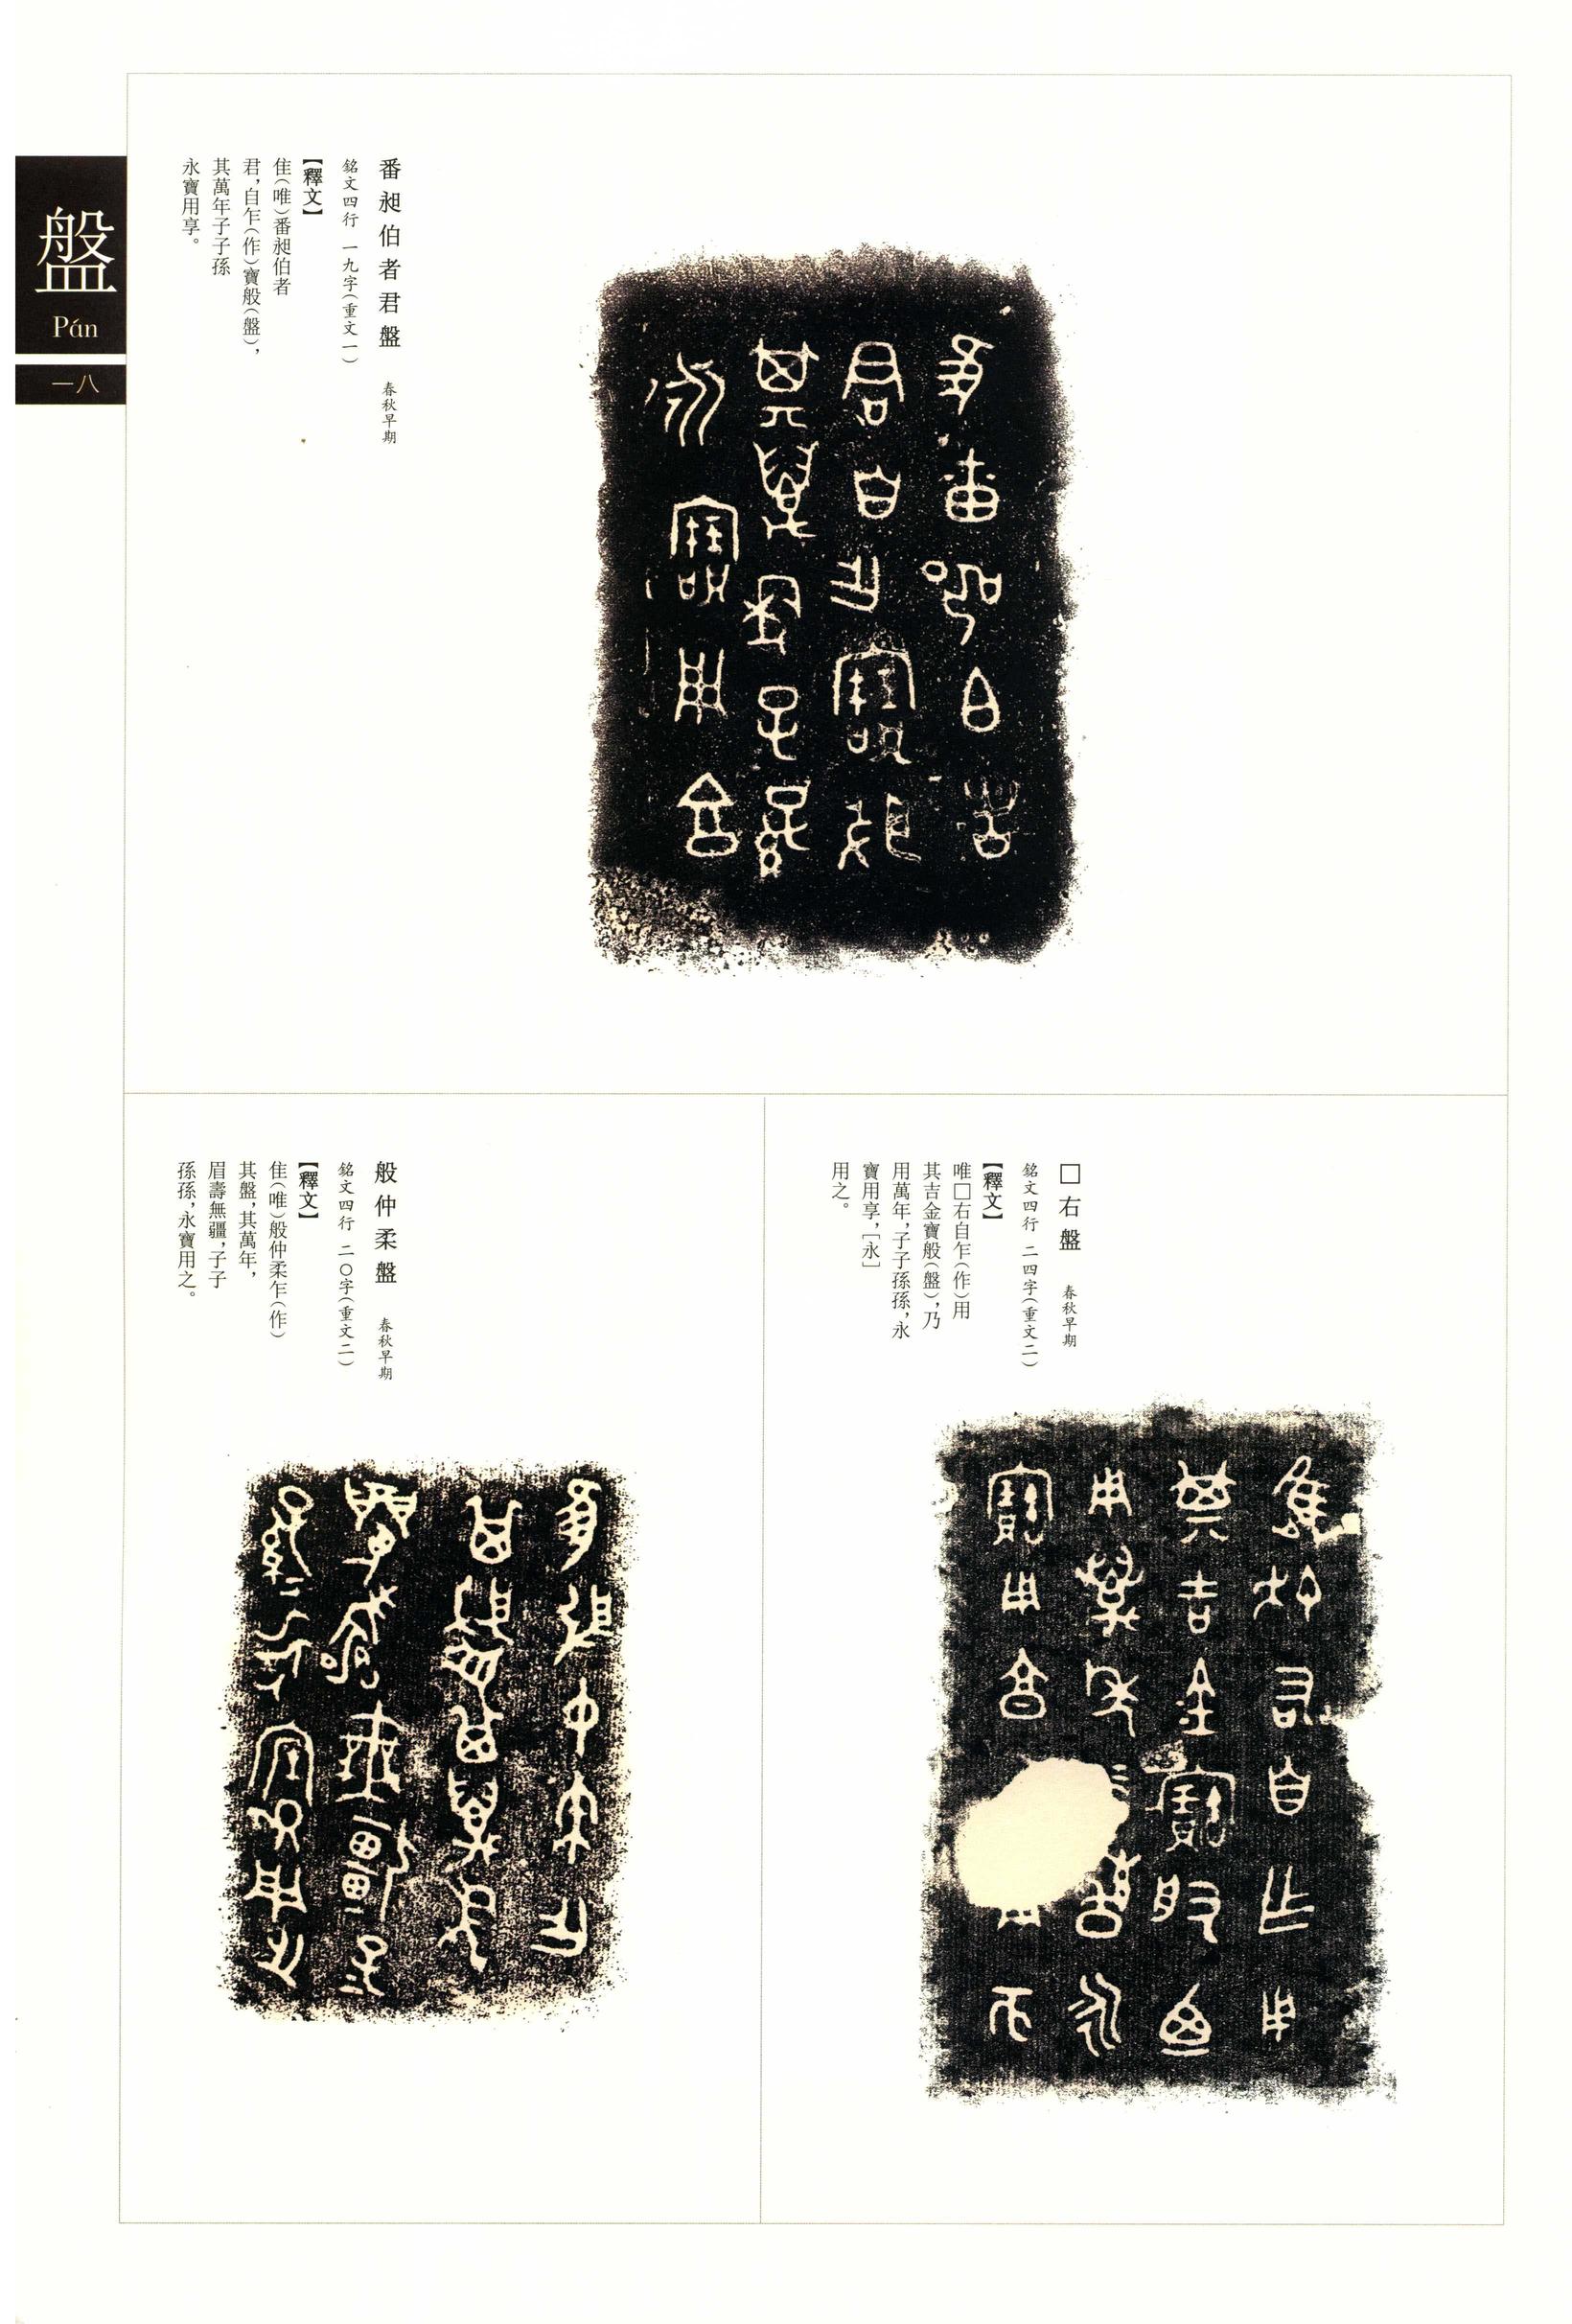 盤
Pán
一八
番昶伯者君盤 春秋早期
銘文四行 一九字(重文一)
【釋文】
隹(唯)番昶伯者
君,自乍(作)寶般(盤),
其萬年子子孫
永寶用享。
□右盤 春秋早期
銘文四行 二四字(重文二)
【釋文】
唯□右自乍(作)用
其吉金寶般(盤),乃
用萬年,子子孫孫,永
寶用享,[永]
用之。
般仲柔盤 春秋早期
銘文四行 二〇字(重文二)
【釋文】
隹(唯)般仲柔乍(作)
其盤,其萬年,
眉壽無疆,子子
孫孫,永寶用之。